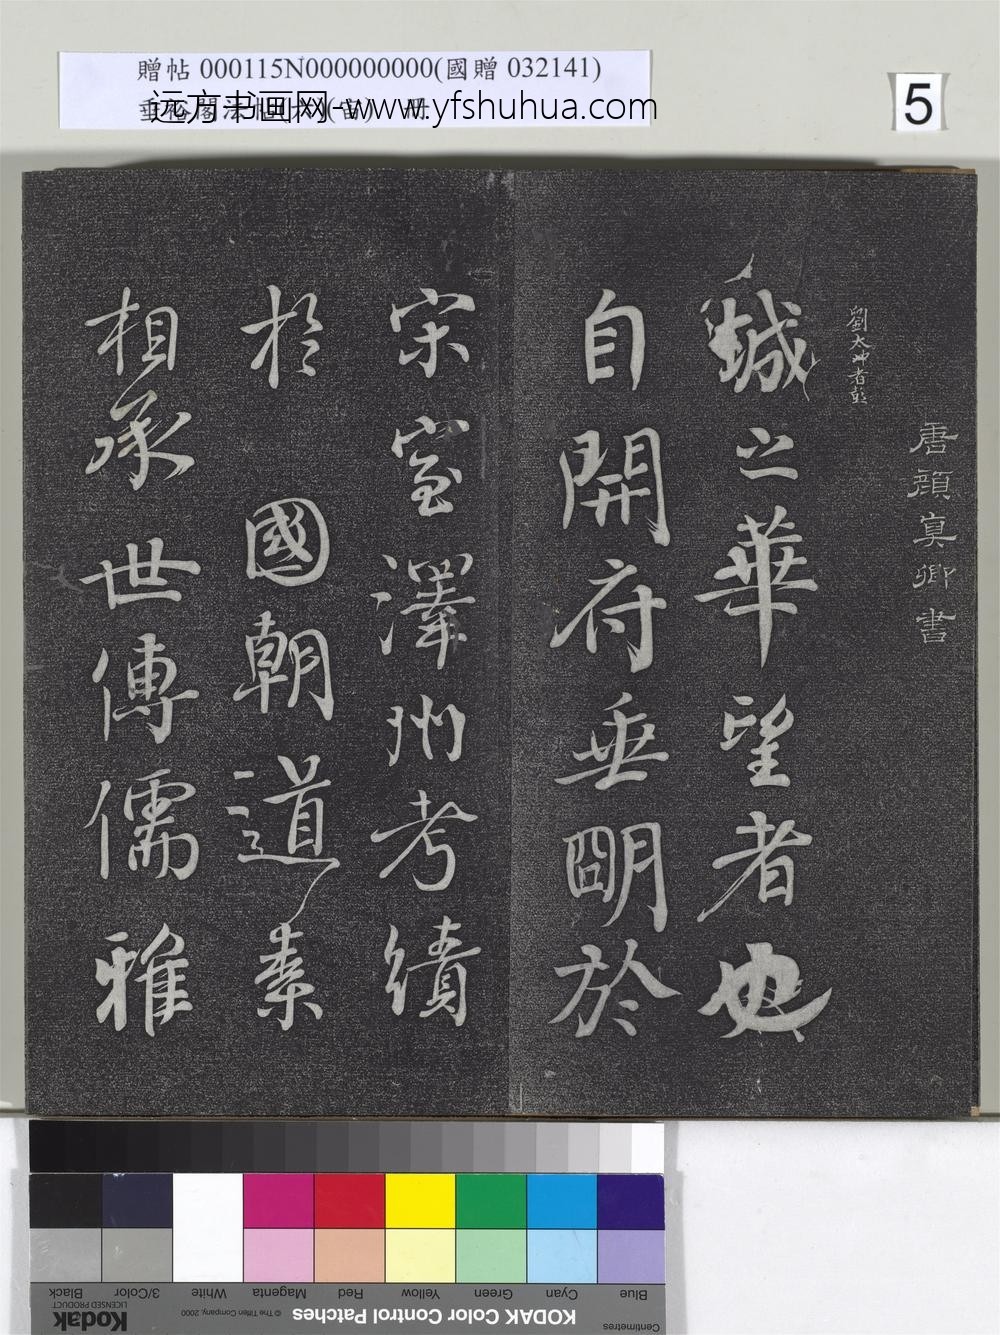 贈帖 000115N000000000(國贈 032141)
远方书画网-www.yfshuhua.com
5
唐顏真卿書
劉太沖者彭
城之華望者也
自開府垂明於
宋室澤州考績
於 國朝道素
相承世傳儒雅
Blue Cyan Green Yellow Red Magenta White 3/Color Black
Centimetres
KODAK Color Control Patches
© The Tiffen Company, 2000
Kodak
LICENSED PRODUCT